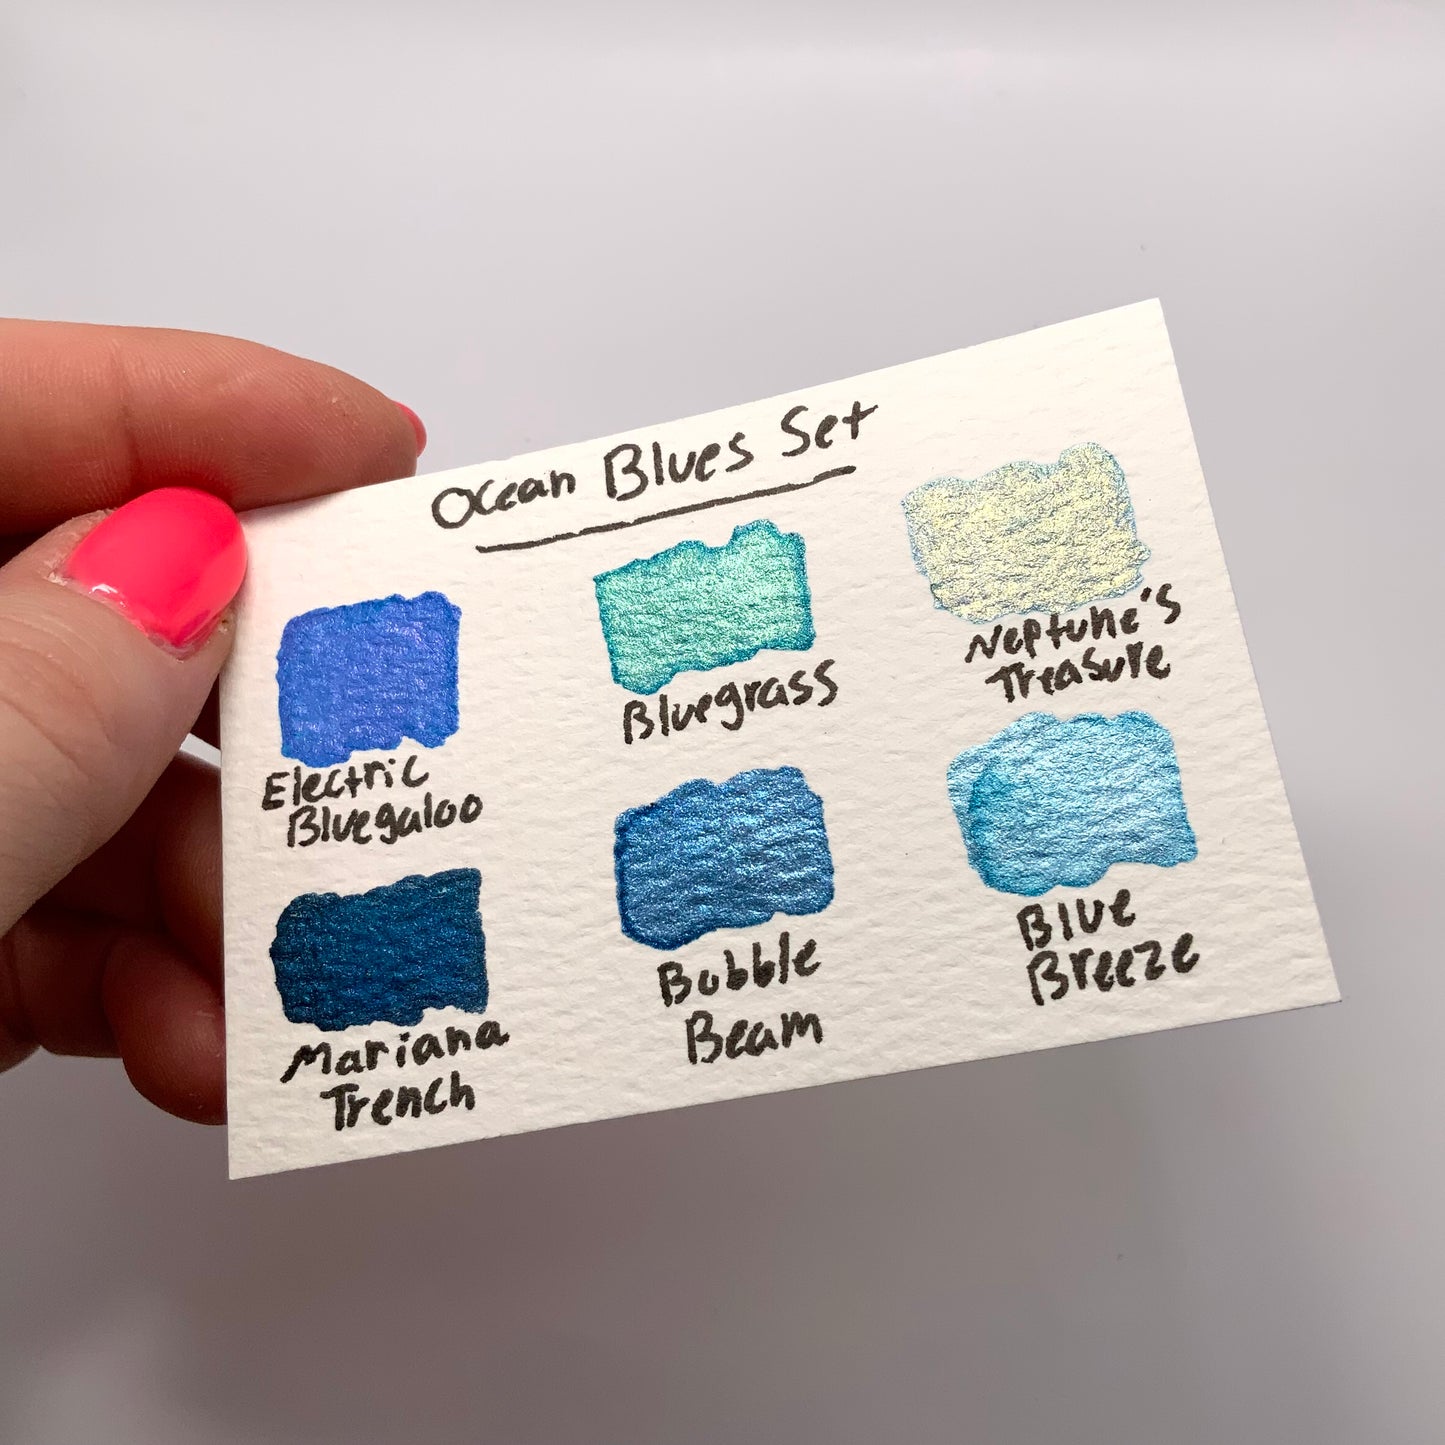 Ocean Blues Set
Electric
Bluegaloo
Bluegrass
Neptune's
Treasure
Mariana
Trench
Bubble
Beam
Blue
Breeze